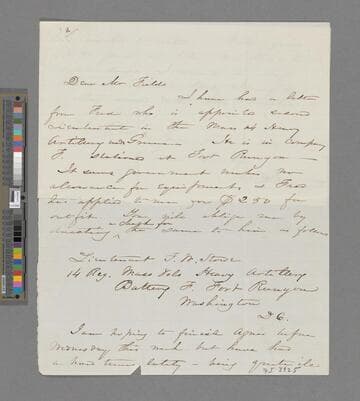 Dear Mr Fields
I have had a letter
from Fred who is appointed second
Lieutenant in the Mass 14 Heavy
Artillery He is in company
F. Stationed at Fort Runyon
It seems government makes no
allowance for equipments & Fred
has applied to me for $250 for
outfit You will oblige me by
the same to him as follows
Lieutenant F. W. Stowe
14 Reg. Mass Vols Heavy Artillery
Battery F. Fort Runyon
Washington
D C.
I am hoping to finish Agnes before
Wednesday this week but have had
a hard time lately - being quite ill
HJ 3925